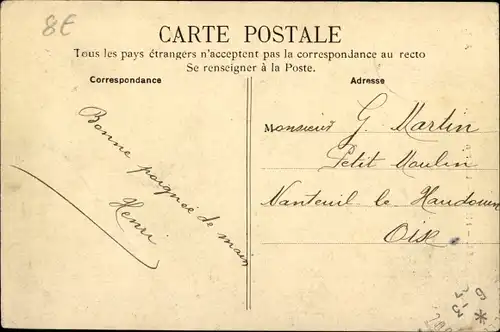 8E
CARTE POSTALE
Tous les pays étrangers n'acceptent pas la correspondance au recto
Se renseigner à la Poste.
Correspondance
Bonne poignée de main
Henri
Adresse
Monsieur G. Martin
Petit Moulin
Nanteuil le Haudouin
Oise